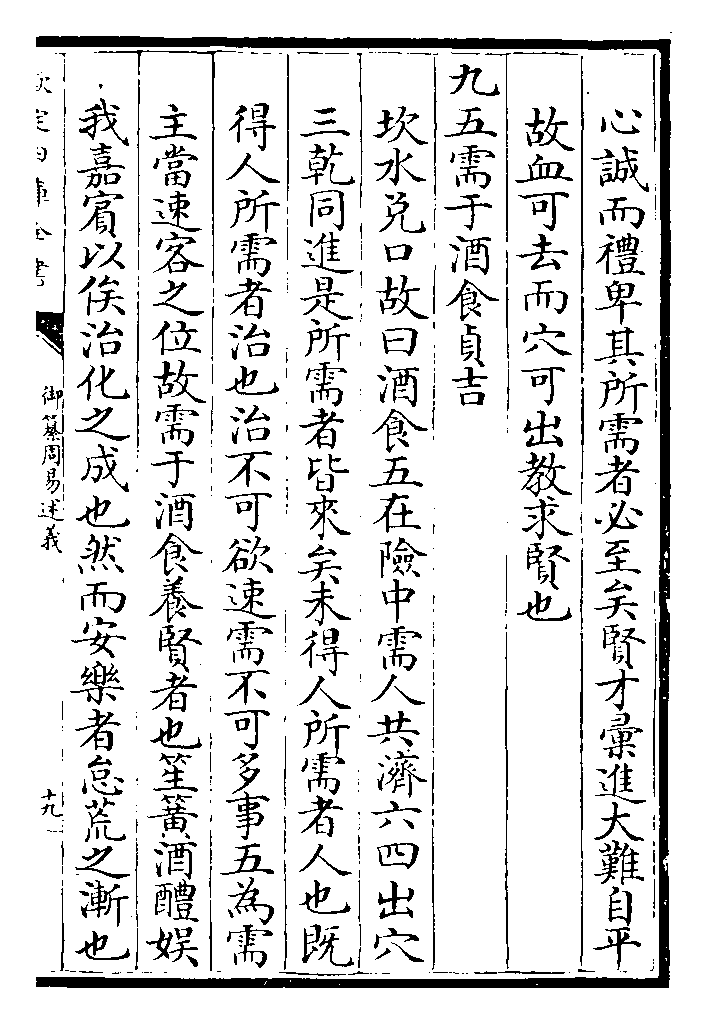 心誠而禮卑其所需者必至矣賢才彙進大難自平
故血可去而穴可出教求賢也
九五需于酒食貞吉
坎水兑口故曰酒食五在險中需人共濟六四出穴
三乾同進是所需者皆來矣未得人所需者人也既
得人所需者治也治不可欲速需不可多事五為需
主當速客之位故需于酒食養賢者也笙簧酒醴娱
我嘉賓以俟治化之成也然而安樂者怠荒之漸也
欽定四庫全書
御纂周易述義
十九